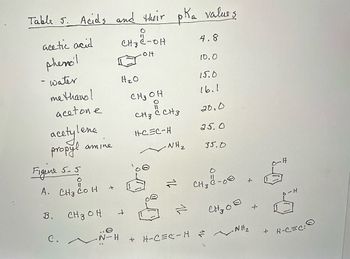 Table 5. Acids and their pKa values
acetic acid CH3C-OH O 4.8
phenol OH 10.0
- water H2O 15.0
methanol CH3OH 16.1
acetone CH3CCH3 O 20.0
acetylene H-C≡C-H 25.0
propyl amine NH2 35.0
Figure 5-5
A. CH3COH O + O⊖ ⇌ CH3C-O⊖ O + O-H
B. CH3OH + O⊖ ⇌ CH3O⊖ + O-H
C. N⊖-H + H-C≡C-H ⇌ NH2 + H-C≡C:⊖